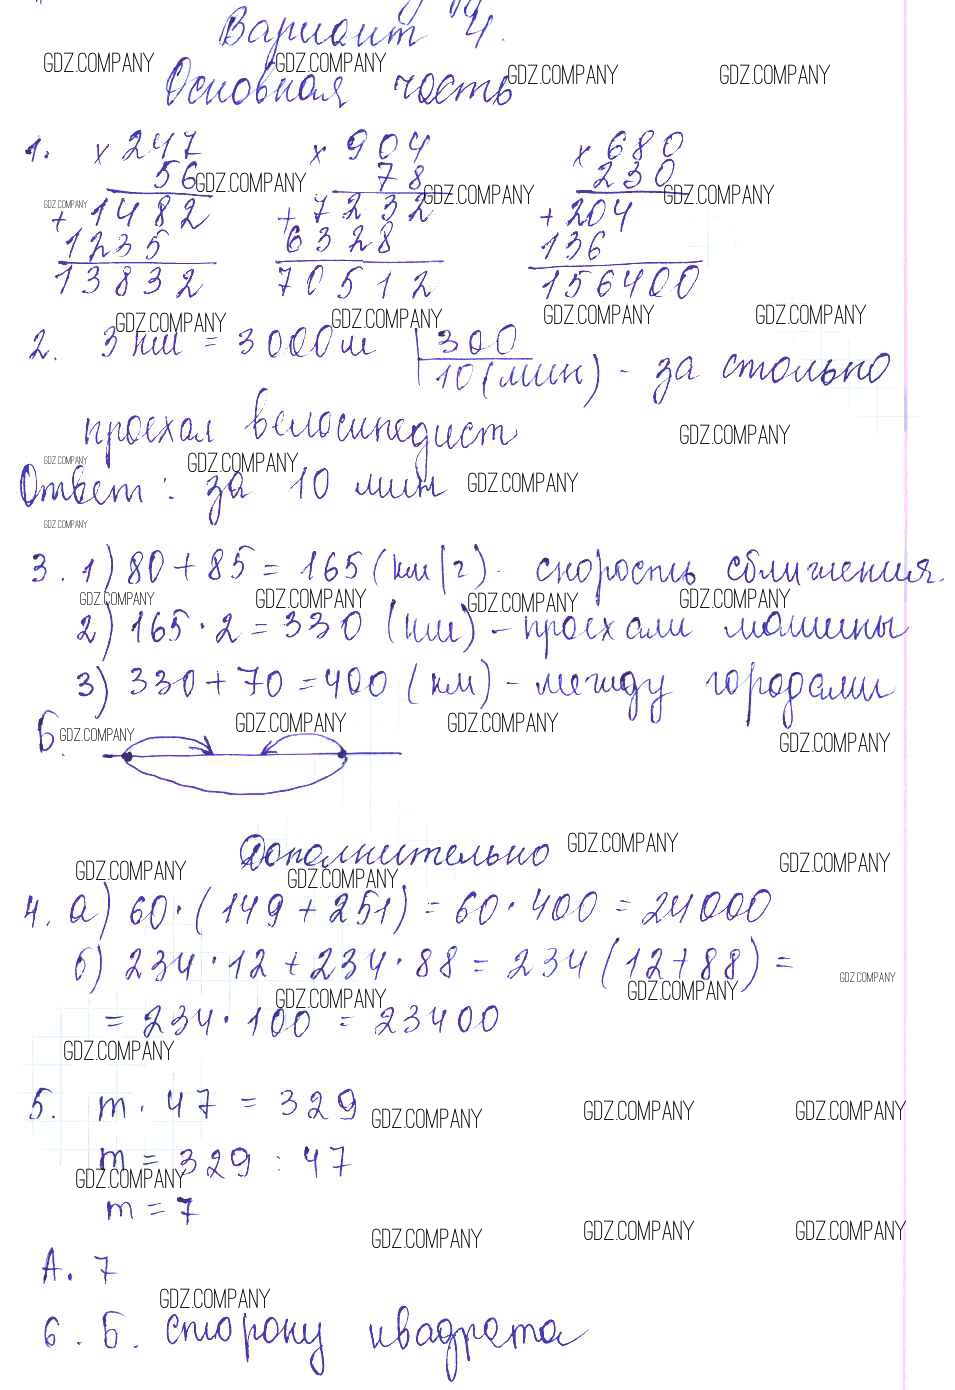 Вариант 4.
GDZ.COMPANY GDZ.COMPANY GDZ.COMPANY GDZ.COMPANY
Основная часть
1. × 247 × 904 × 680
56 78 230
GDZ.COMPANY GDZ.COMPANY GDZ.COMPANY
GDZ.COMPANY
+ 1482 + 7232 + 204
1235 6328 136
13832 70512 156400
GDZ.COMPANY GDZ.COMPANY GDZ.COMPANY GDZ.COMPANY
2. 3 км = 3000 м | 300
10 (мин) - за столько
проехал велосипедист
GDZ.COMPANY
GDZ.COMPANY GDZ.COMPANY
Ответ: за 10 мин GDZ.COMPANY
GDZ.COMPANY
3. 1) 80 + 85 = 165 (км/г) - скорость сближения.
GDZ.COMPANY GDZ.COMPANY GDZ.COMPANY GDZ.COMPANY
2) 165 · 2 = 330 (км) - проехали машины
3) 330 + 70 = 400 (км) - между городами
Б.
GDZ.COMPANY GDZ.COMPANY GDZ.COMPANY GDZ.COMPANY
Дополнительно
GDZ.COMPANY GDZ.COMPANY
GDZ.COMPANY GDZ.COMPANY
4. а) 60 · (149 + 251) = 60 · 400 = 24000
б) 234 · 12 + 234 · 88 = 234 (12 + 88) =
GDZ.COMPANY
GDZ.COMPANY GDZ.COMPANY
= 234 · 100 = 23400
GDZ.COMPANY
5. m · 47 = 329
GDZ.COMPANY GDZ.COMPANY GDZ.COMPANY
m = 329 : 47
GDZ.COMPANY
m = 7
GDZ.COMPANY GDZ.COMPANY GDZ.COMPANY
А. 7
GDZ.COMPANY
6. Б. сторону квадрата